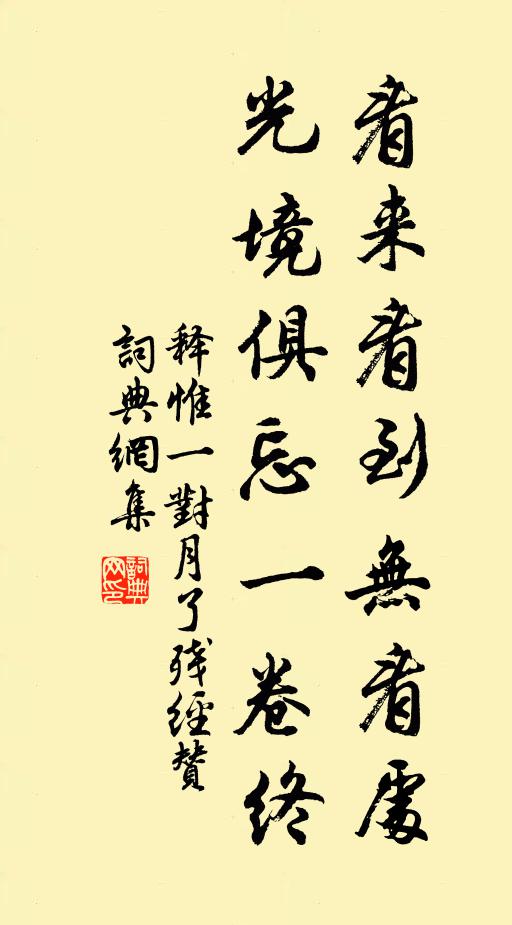 看来看到無看處
光境俱忘一卷終
释惟一對月了残經賛
詞典網集
詞典網印